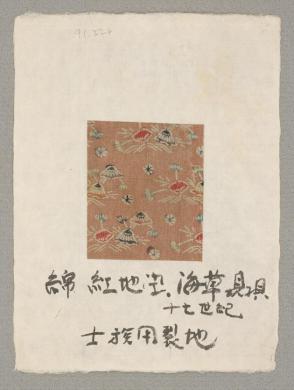 91.224
綿 紅地型 海草貝損
十七世紀
士族用裂地